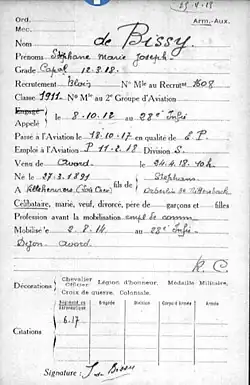 29-4-18
Ord.
Arm.-Aux.
Mec.
Nom de Bissy.
Prénoms Stéphane Marie Joseph
Grade Capol 12.3.18.
Recrutement Blois N° Mle au Recrutt 1608
Classe 1911. N° Mle au 2e Groupe d'Aviation
Engagé
Appelé le 8.10.12 au 28e Infie
Passé à l'Aviation le 18.10.17 en qualité de E P
Emploi à l'Aviation P 11.2.18 Division S.
Venu de Avord le 24.4.18 10h.
Né le 27.3.1891 fils de Stéphane
A (Loir Cher)
Célibataire, marié, veuf, divorcé, père de garçons et filles
Profession avant la mobilisation empl de comm
Mobilisé le 2.8.14 au 28e Infie
Dijon Avord
R. C.
Décorations Chevalier Officier Légion d'honneur. Médaille Militaire,
Croix de guerre. Coloniale.
Citations Régiment ou Aéronautique Brigade Division Corps d'Armée Armée
6.17
Signature: S de Bissy